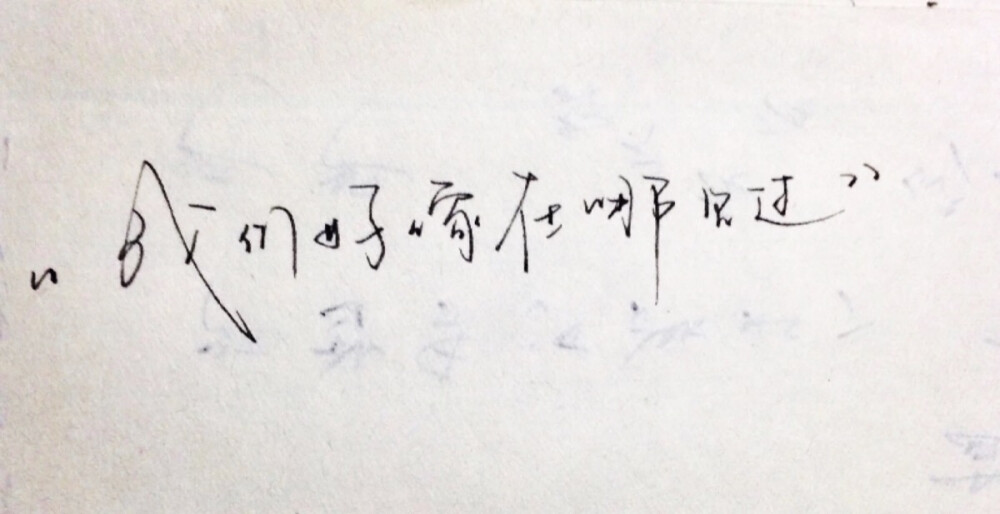 “我们好像在哪见过”